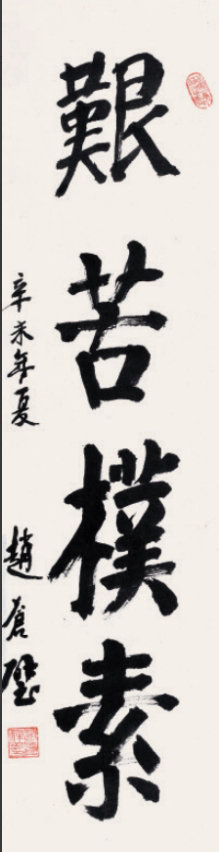 艱苦樸素
辛未年夏
趙蒼璧